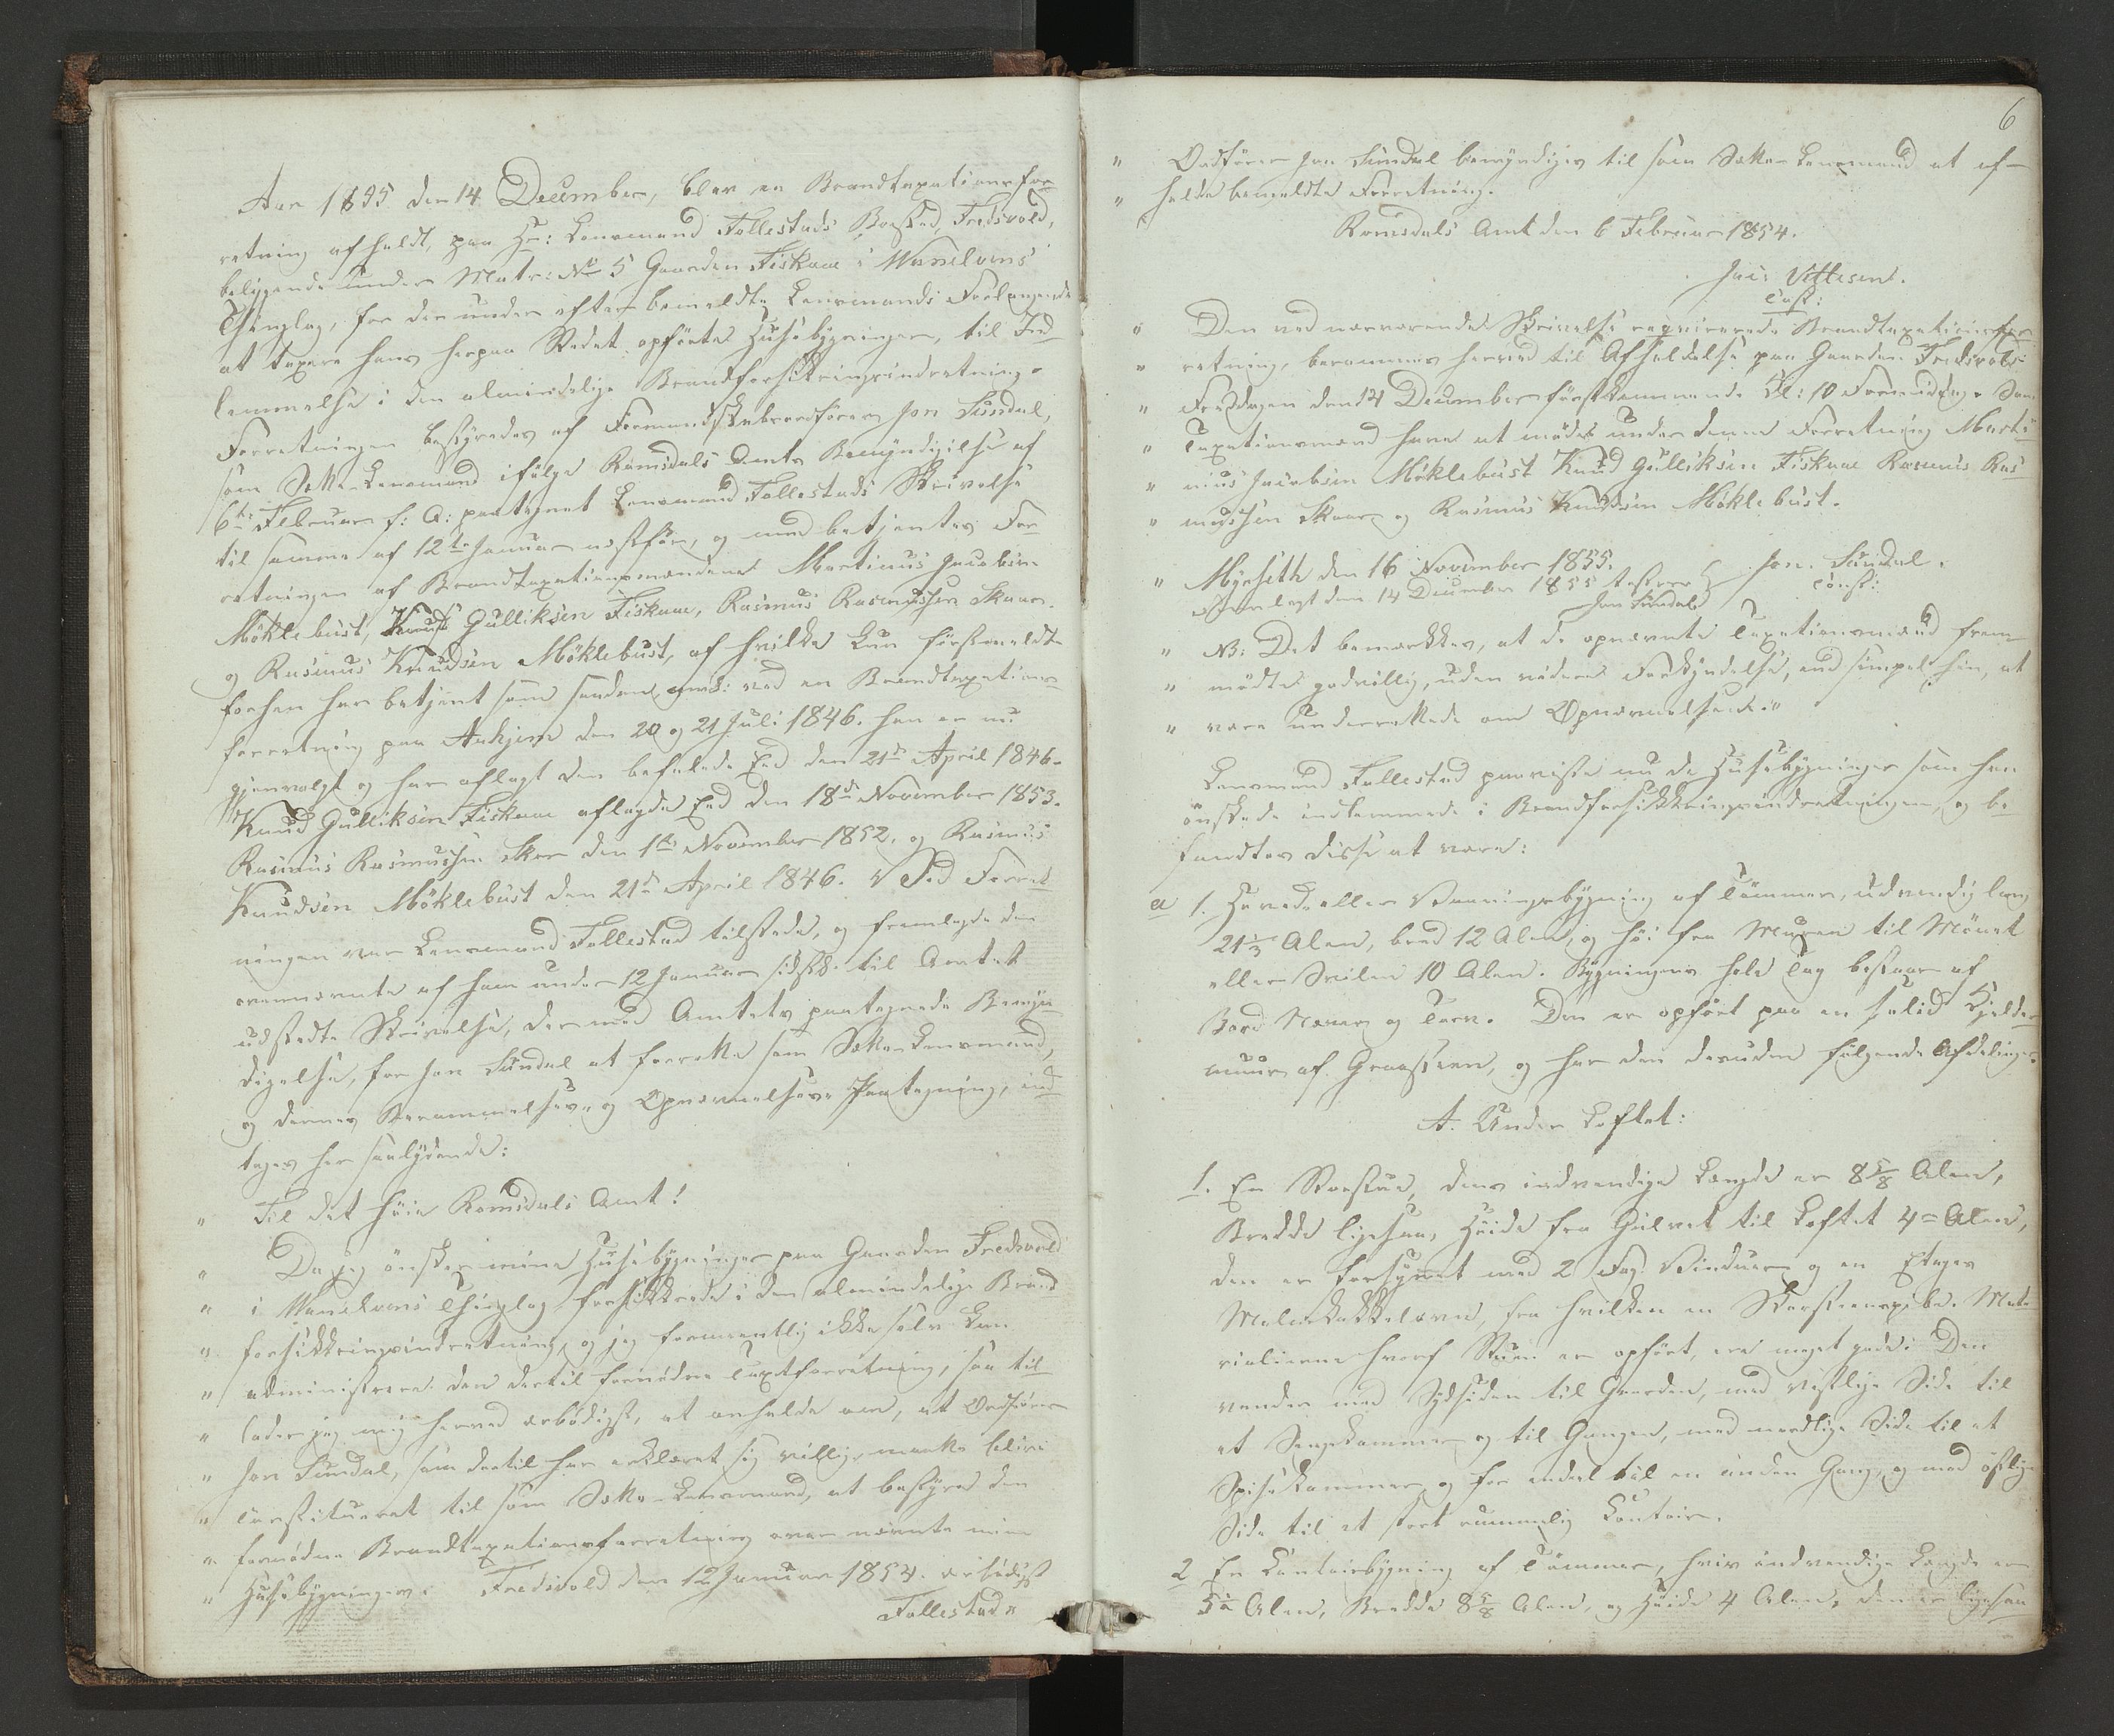 Aar 1855 den 14 December, blev en Brandtaxationsfor-
retning afholdt, paa Hr: Lensmand Follestads Bosted, Fredsvold,
beligende under Matr: No 5 Gaarden Fiskaae i Wanelvens
Thinglag, for der under efter bemeldte Lensmands Forlangende
at taxere hans herpaa Stedet opførte Huusebygninger, til Ind-
lemmelse i den almindelige Brandforsikringsindretning.
Forretningen bestyredes af Formandskabsordfører Jon Sundal,
som Sætte-Lensmand ifølge Romsdals Amts Bemyndigelse af
6te Februar f: A: paategnet Lensmand Follestads Skrivelse
til samme af 12te Januar næstfør, og med betjentes For-
retningen af Brandtaxationsmændene Martinus Jacobsen
Møklebust, Knud Gulliksen Fiskaae, Rasmus Rasmussen Skaar
og Rasmus Knudsen Møklebust, af hvilke Kun førstmeldte
forhen har betjent som saadan ved en Brandtaxations-
forretning paa Aahjem den 20 og 21 Juli 1846. han er nu
gjenvalgt og har aflagt den befalede Eed den 21de April 1846.
Knud Gulliksen Fiskaae aflagde Eed den 18de November 1853.
Rasmus Rasmussen Skar den 1ste November 1852. og Rasmus
Knudsen Møklebust den 21de April 1846. Ved Forret-
ningen var Lensmand Follestad tilstede, og fremlagde den
ovennævnte af ham under 12 Januar sidstl. til Amtet
udstedte Skrivelse, der med Amtets paategnede Bemyn-
digelse, for Jon Sundal at forrette som Sætte-Lensmand,
og dennes Berammelses- og Opnævnelses-Paategning, ind-
tages her saalydende:
" Til det høie Romsdals Amt!
" Da jeg ønsker mine Huusebygninger paa Gaarden Fredsvold
" i Wanelvens Thinglag forsikkrede i den almindelige Brand-
" forsikkringsindretning, og jeg formentlig ikke selv kan
" administrere den dertil fornødne Taxtforretning, saa til-
" lader jeg mig herved ærbødigst, at anholde om, at Ordfører
" Jon Sundal, som dertil har erklæret sig villig, maatte blive
" constitueret til som Sætte-Lensmand, at bestyre den
" fornødne Brandtaxationsforretning over nævnte mine
" Huusebygninger. Fredsvold den 12 Januar 1854. ærbødigst
Follestad"
6
" Ordfører Jon Sundal bemyndiges til som Sætte-Lensmand at af-
" holde bemeldte Forretning.
Romsdals Amt den 6 Februar 1854.
Vittesen.
cost:
" Den ved nærværende Skrivelse requirerede Brandtaxationsfor-
" retning, berammes herved til Afholdelse paa Gaarden Fredsvold
" Fredagen den 14 December førstkommende Kl: 10 Formiddag. Som
" Taxationsmænd have at møde under denne Forretning Marti-
" nius Jacobsen Møklebust Knud Gulliksen Fiskaae Rasmus Ras-
" mussen Skaar og Rasmus Knudsen Møklebust.
" Myrseth den 16 November 1855. Jon. Sundal.
Fremlagt den 14 December 1855 testerer const:
Jon Sundal
" NB: Det bemærkes, at de opnævnte Taxationsmænd frem-
" mødte godvillig, uden videre Forkyndelse, end simpel hen, at
" være underrettede om Opnævnelsen."
Lensmand Follestad paaviste nu de Huusebygninger som han
ønskede indlemmede i Brandforsikkringsindretningen, og be-
fandtes disse at være:
a 1. Hoved- eller Vaaningsbygning af Tømmer, udvendig lang
21 1/3 Alen, bred 12 Alen, og høi fra Muren til Mønet
eller Svilen 10 Alen. Bygningens hele Tag bestaar af
Bord Næver og Torv. Den er opført paa en solid Kjelder-
muur af Graasteen, og har den desuden følgende Afdelinger.
A. Under Loftet:
1. En Storstue, dens indvendige Længde er 8 5/8 Alen,
Bredde ligesaa, Høide fra Gulvet til Loftet 4 Alen,
den er forsynet med 2 Fag Vinduer og en Etages
Kakkelovn, fra hvilken en Skorsteenspibe. Mate-
rialierne hvorf Stuen er opført, ere meget gode: Den
vender med Sydsiden til Gaarden, med vestlige Side til
et Sengekammer og til Gangen, med nordlige Side til et
Spisekammer og for endeel til en anden Gang, og med østlige
Side til et stort rummelig Contoir.
2 En Contoirbygning af Tømmer, hvis indvendige Længde er
5 Alen, Bredde 8 5/8 Alen, og Høide 4 Alen, den er ligesaa